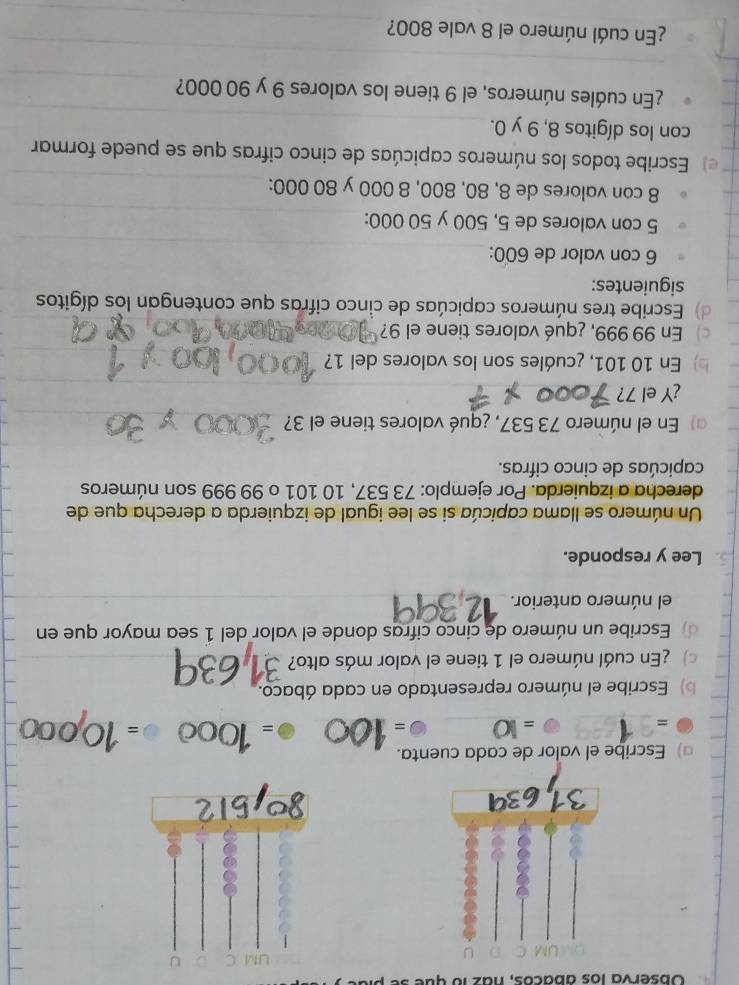 Observa los ábacos, haz lo que se pide y
DM UM C D U
UM C D U
31,639
80,512
a) Escribe el valor de cada cuenta.
= 1 = 10 = 100 = 1000 = 10,000
b) Escribe el número representado en cada ábaco.
c) ¿En cuál número el 1 tiene el valor más alto? 31,639
d) Escribe un número de cinco cifras donde el valor del 1 sea mayor que en
el número anterior. 12,399
5. Lee y responde.
Un número se llama capicúa si se lee igual de izquierda a derecha que de
derecha a izquierda. Por ejemplo: 73 537, 10 101 o 99 999 son números
capicúas de cinco cifras.
a) En el número 73 537, ¿qué valores tiene el 3? 3000 y 30
¿Y el 7? 7000 y 7
b) En 10 101, ¿cuáles son los valores del 1? 1000, 100 y 1
c) En 99 999, ¿qué valores tiene el 9?
d) Escribe tres números capicúas de cinco cifras que contengan los dígitos
siguientes:
• 6 con valor de 600:
• 5 con valores de 5, 500 y 50 000:
• 8 con valores de 8, 80, 800, 8 000 y 80 000:
e) Escribe todos los números capicúas de cinco cifras que se puede formar
con los dígitos 8, 9 y 0.
• ¿En cuáles números, el 9 tiene los valores 9 y 90 000?
• ¿En cuál número el 8 vale 800?